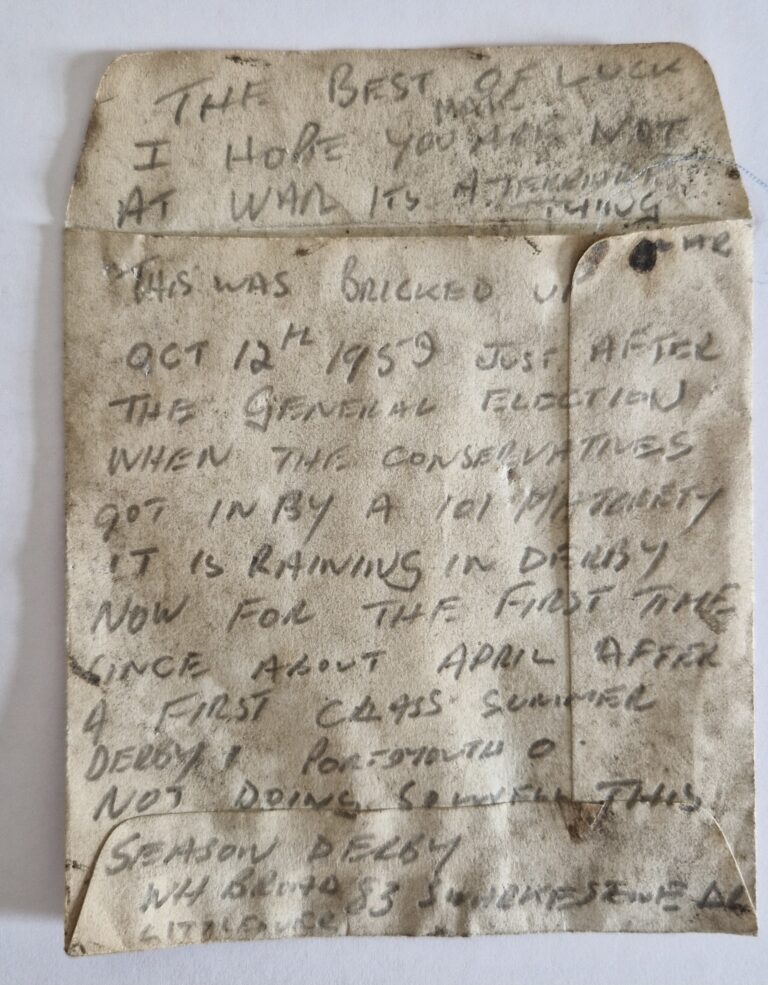 THE BEST OF LUCK
I HOPE YOU ARE NOT
AT WAR ITS A TERRIBLE
THING
WAR
THIS WAS BRICKED UP
OCT 12TH 1959 JUST AFTER
THE GENERAL ELECTION
WHEN THE CONSERVATIVES
GOT IN BY A 101 MAJORETY
IT IS RAINING IN DERBY
NOW FOR THE FIRST TIME
SINCE ABOUT APRIL AFTER
A FIRST CLASS SUMMER
DERBY 1 PORTSMOUTH 0
NOT DOING SO WELL THIS
SEASON DERBY
WH BROAD 83
LITTLEOVER